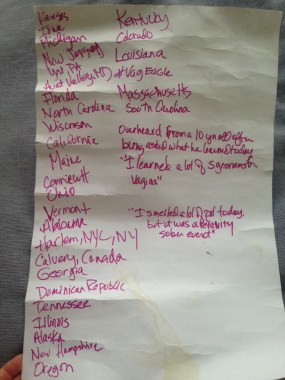 Kansas
Michigan
New Jersey
W PA
Florida
North Carolina
Wisconsin
California
Maine
Connecticutt
Ohio
Vermont
Alabama
Harlem, NYC, NY
Calvery, Canada
Georgia
Dominican Republic
Tennessee
Illinois
Alaska
New Hampshire
Oregon
Kentucky
Colorado
Louisiana
#VagEagle
Massachusetts
South Carolina
Overheard from a 10 yr old
being asked what he learned today
"I learned a lot of synonyms for
vagina"
"I smelled a lot of pot today,
but it was a
sober event"